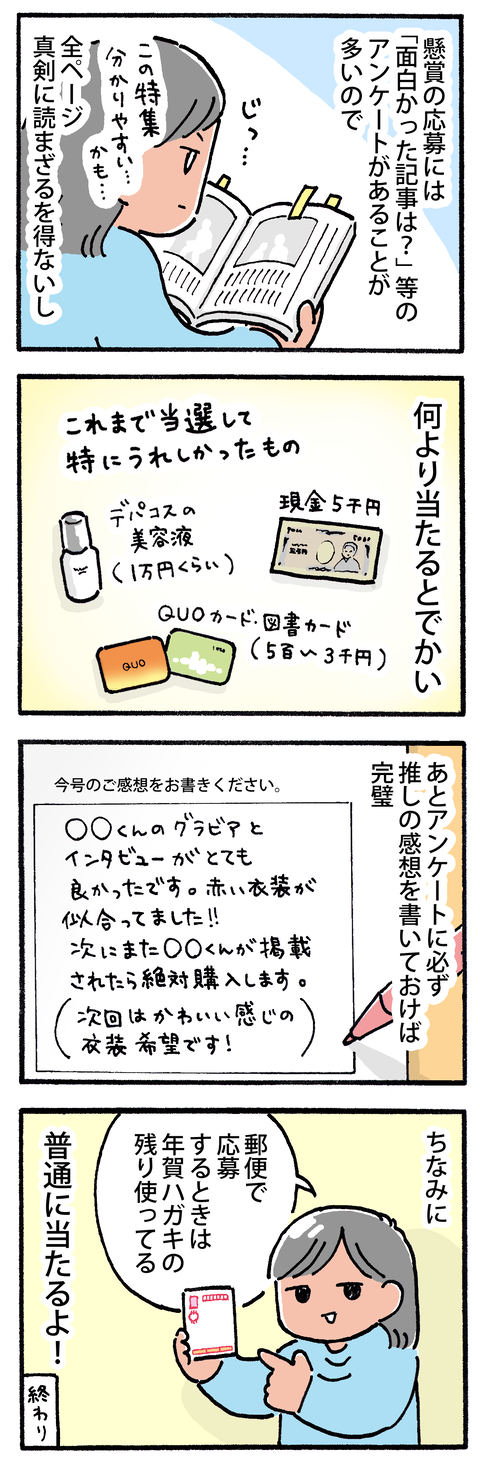 懸賞の応募には
「面白かった記事は？」等の
アンケートがあることが
多いので
じっ…
この特集
分かりやすい…
かも…
全ページ
真剣に読まざるを得ないし
何より当たるとでかい
これまで当選して
特にうれしかったもの
デパコスの
美容液
(1万円くらい)
現金5千円
QUOカード・図書カード
(5百〜3千円)
QUO
あとアンケートに必ず
推しの感想を書いておけば
完璧
今号のご感想をお書きください。
〇〇くんのグラビアと
インタビューがとても
良かったです。赤い衣装が
似合ってました!!
次にまた〇〇くんが掲載
されたら絶対購入します。
(次回はかわいい感じの
衣装希望です!)
ちなみに
郵便で
応募
するときは
年賀ハガキの
残り使ってる
普通に当たるよ！
終わり